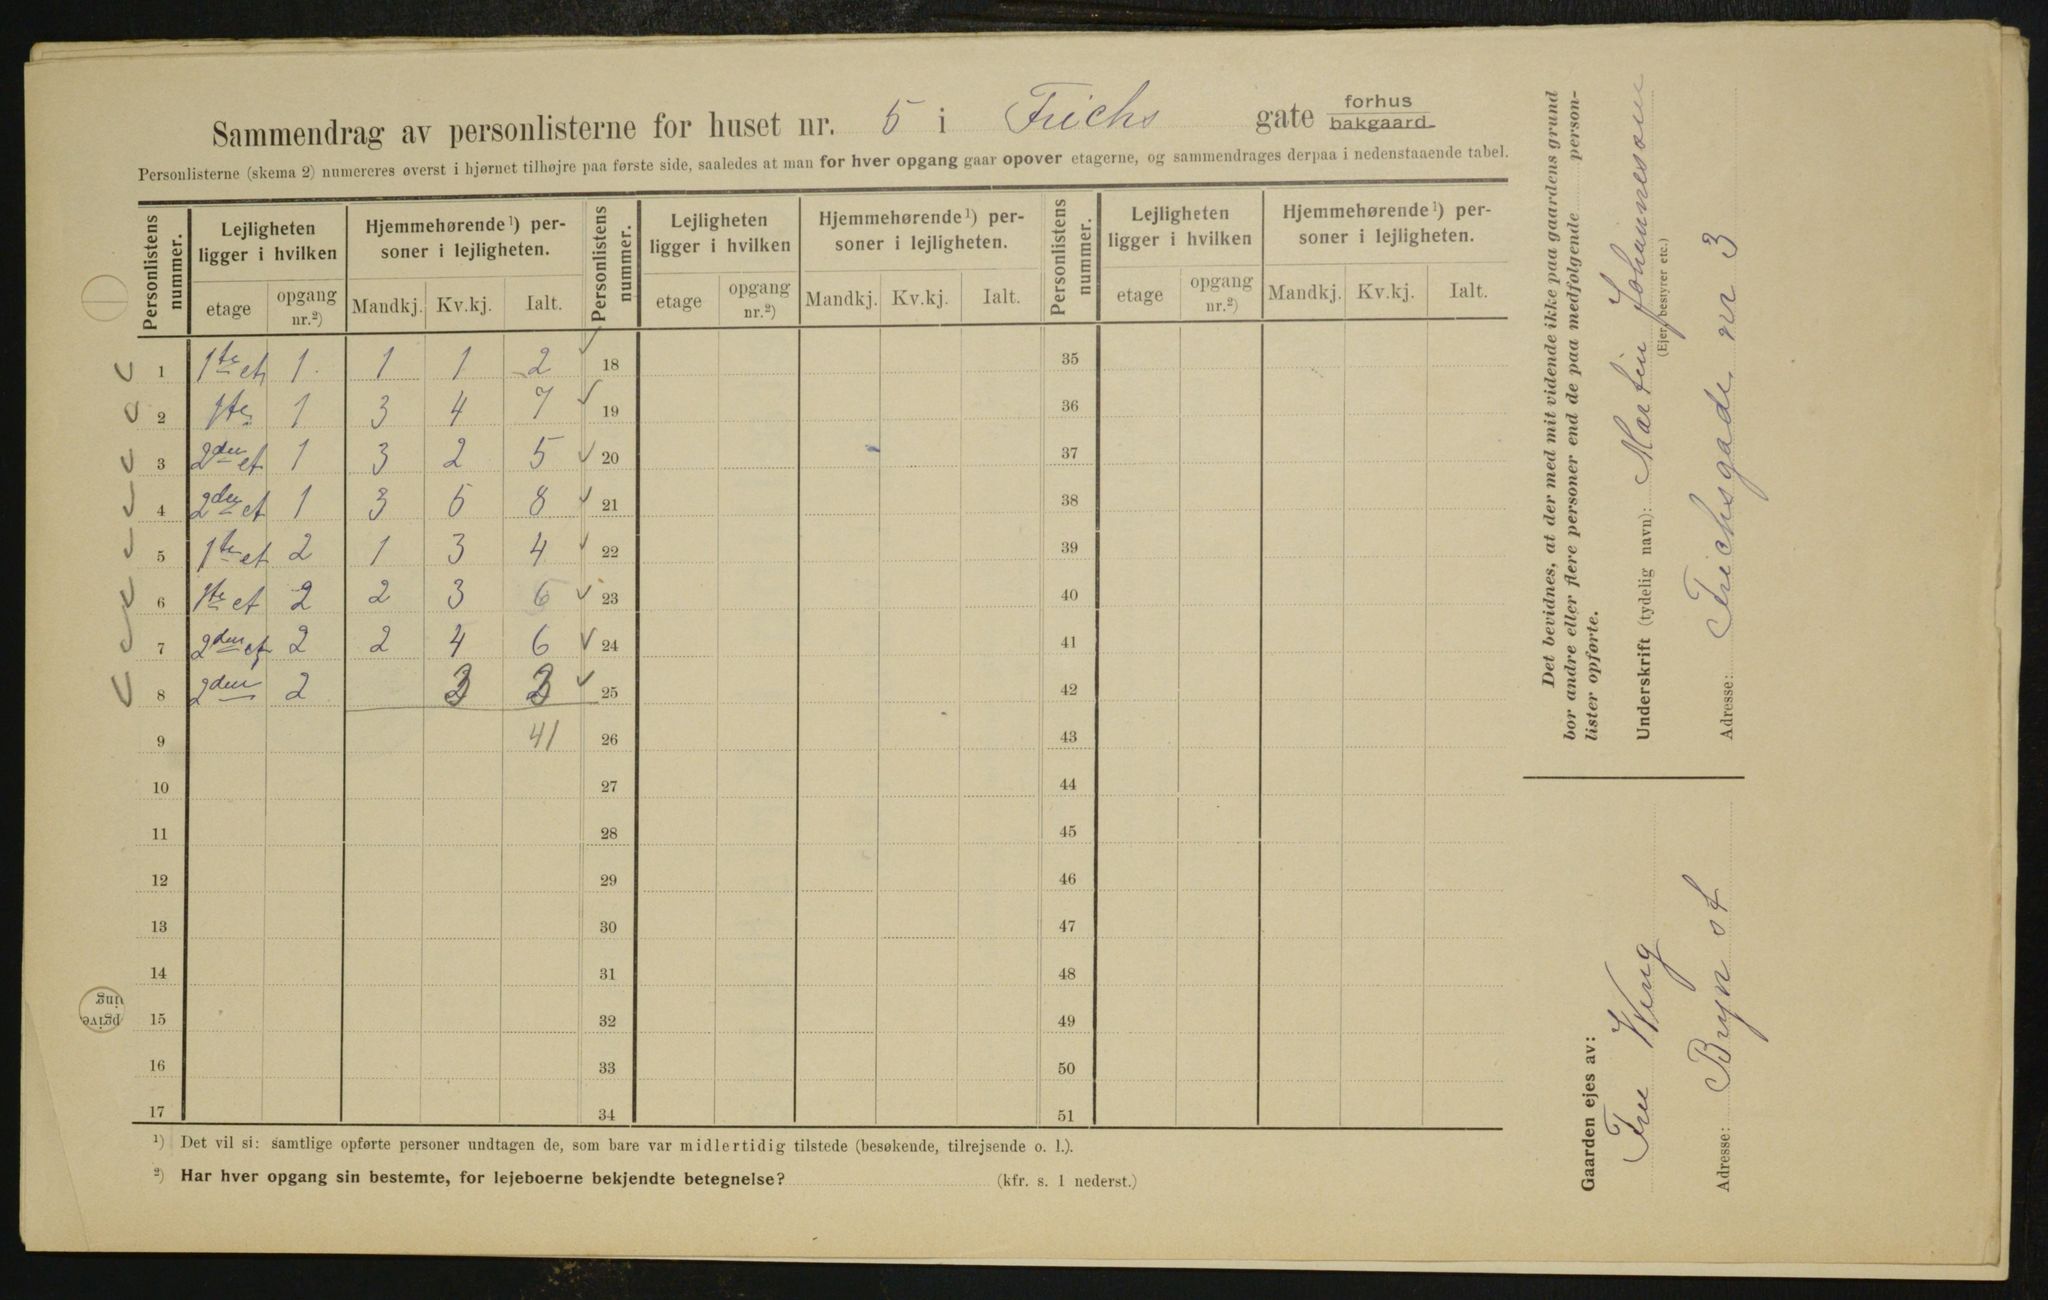 Sammendrag av personlisterne for huset nr. 5 i Frichs gate forhus
bakgaard.
Personlisterne (skema 2) numereres øverst i hjørnet tilhøjre paa første side, saaledes at man for hver opgang gaar opover etagerne, og sammendrages derpaa i nedenstaaende tabel.
Personlistens nummer. Lejligheten ligger i hvilken Hjemmehørende¹) personer i lejligheten. Personlistens nummer. Lejligheten ligger i hvilken Hjemmehørende¹) personer i lejligheten. Personlistens nummer. Lejligheten ligger i hvilken Hjemmehørende¹) personer i lejligheten.
etage opgang nr.²) Mandkj. Kv.kj. Ialt. etage opgang nr.²) Mandkj. Kv.kj. Ialt. etage opgang nr.²) Mandkj. Kv.kj. Ialt.
1 1ste et 1 1 1 2 18 35
2 1ste 1 3 4 7 19 36
3 2den et 1 3 2 5 20 37
4 2den et 1 3 5 8 21 38
5 1ste et 2 1 3 4 22 39
6 1ste et 2 2 3 6 23 40
7 2den et 2 2 4 6 24 41
8 2den 2 3 3 25 42
9 41 26 43
10 27 44
11 28 45
12 29 46
13 30 47
14 31 48
15 32 49
16 33 50
17 34 51
¹) Det vil si: samtlige opførte personer undtagen de, som bare var midlertidig tilstede (besøkende, tilrejsende o. l.).
²) Har hver opgang sin bestemte, for lejeboerne bekjendte betegnelse? (kfr. s. 1 nederst.)
Det bevidnes, at der med mit vidende ikke paa gaardens grund
bor andre eller flere personer end de paa medfølgende person-
lister opførte.
Underskrift (tydelig navn): Martin Johannesson
(Ejer, bestyrer etc.)
Adresse: Frichsgade nr 3
Gaarden ejes av:
Fru Wing
Adresse: Bryn st
pgive
ing